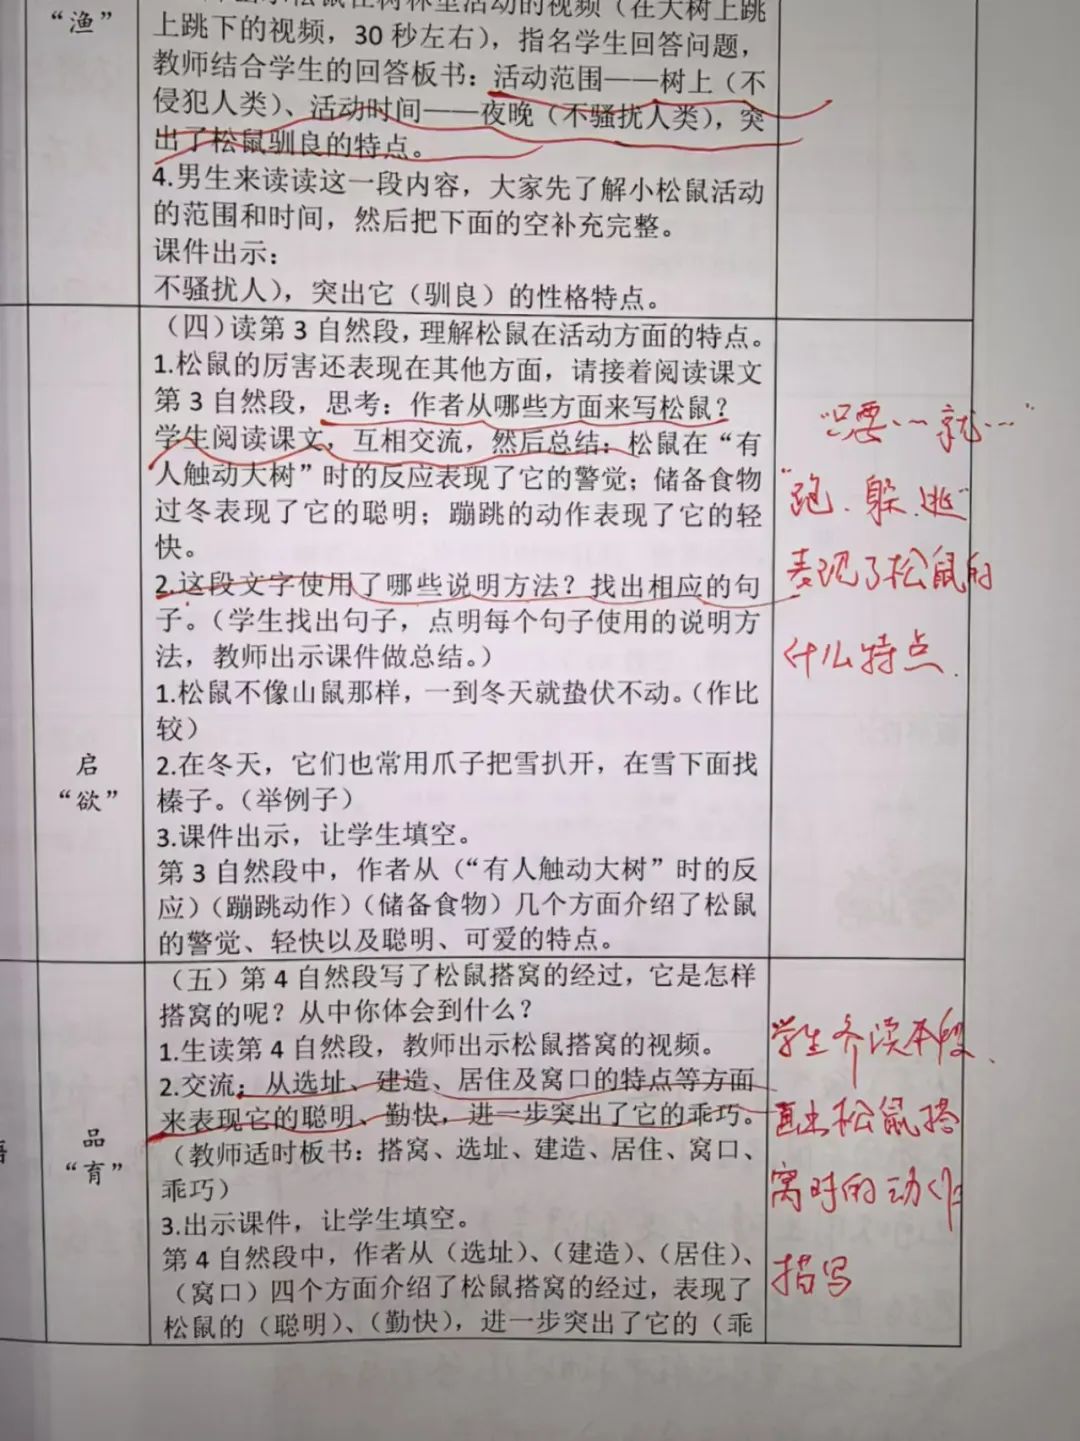 “渔”
上跳下的视频，30 秒左右），指名学生回答问题，
教师结合学生的回答板书：活动范围——树上（不
侵犯人类）、活动时间——夜晚（不骚扰人类），突
出了松鼠驯良的特点。
4.男生来读读这一段内容，大家先了解小松鼠活动
的范围和时间，然后把下面的空补充完整。
课件出示：
不骚扰人），突出它（驯良）的性格特点。
启
“欲”
（四）读第 3 自然段，理解松鼠在活动方面的特点。
1.松鼠的厉害还表现在其他方面，请接着阅读课文
第 3 自然段，思考：作者从哪些方面来写松鼠？
学生阅读课文，互相交流，然后总结：松鼠在“有
人触动大树”时的反应表现了它的警觉；储备食物
过冬表现了它的聪明；蹦跳的动作表现了它的轻
快。
2.这段文字使用了哪些说明方法？找出相应的句
子。（学生找出句子，点明每个句子使用的说明方
法，教师出示课件做总结。）
1.松鼠不像山鼠那样，一到冬天就蛰伏不动。（作比
较）
2.在冬天，它们也常用爪子把雪扒开，在雪下面找
榛子。（举例子）
3.课件出示，让学生填空。
第 3 自然段中，作者从（“有人触动大树”时的反
应）（蹦跳动作）（储备食物）几个方面介绍了松鼠
的警觉、轻快以及聪明、可爱的特点。
“只要……就……”
“跑、躲、逃”
表现了松鼠的
什么特点.
品
“育”
（五）第 4 自然段写了松鼠搭窝的经过，它是怎样
搭窝的呢？从中你体会到什么？
1.生读第 4 自然段，教师出示松鼠搭窝的视频。
2.交流：从选址、建造、居住及窝口的特点等方面
来表现它的聪明、勤快，进一步突出了它的乖巧。
（教师适时板书：搭窝、选址、建造、居住、窝口、
乖巧）
3.出示课件，让学生填空。
第 4 自然段中，作者从（选址）、（建造）、（居住）、
（窝口）四个方面介绍了松鼠搭窝的经过，表现了
松鼠的（聪明）、（勤快），进一步突出了它的（乖
学生齐读本段、
画出松鼠搭
窝时的动作
描写